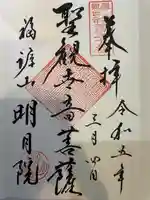 奉拝
令和五年
三月四日
聖観世音菩薩
福源山
明月院